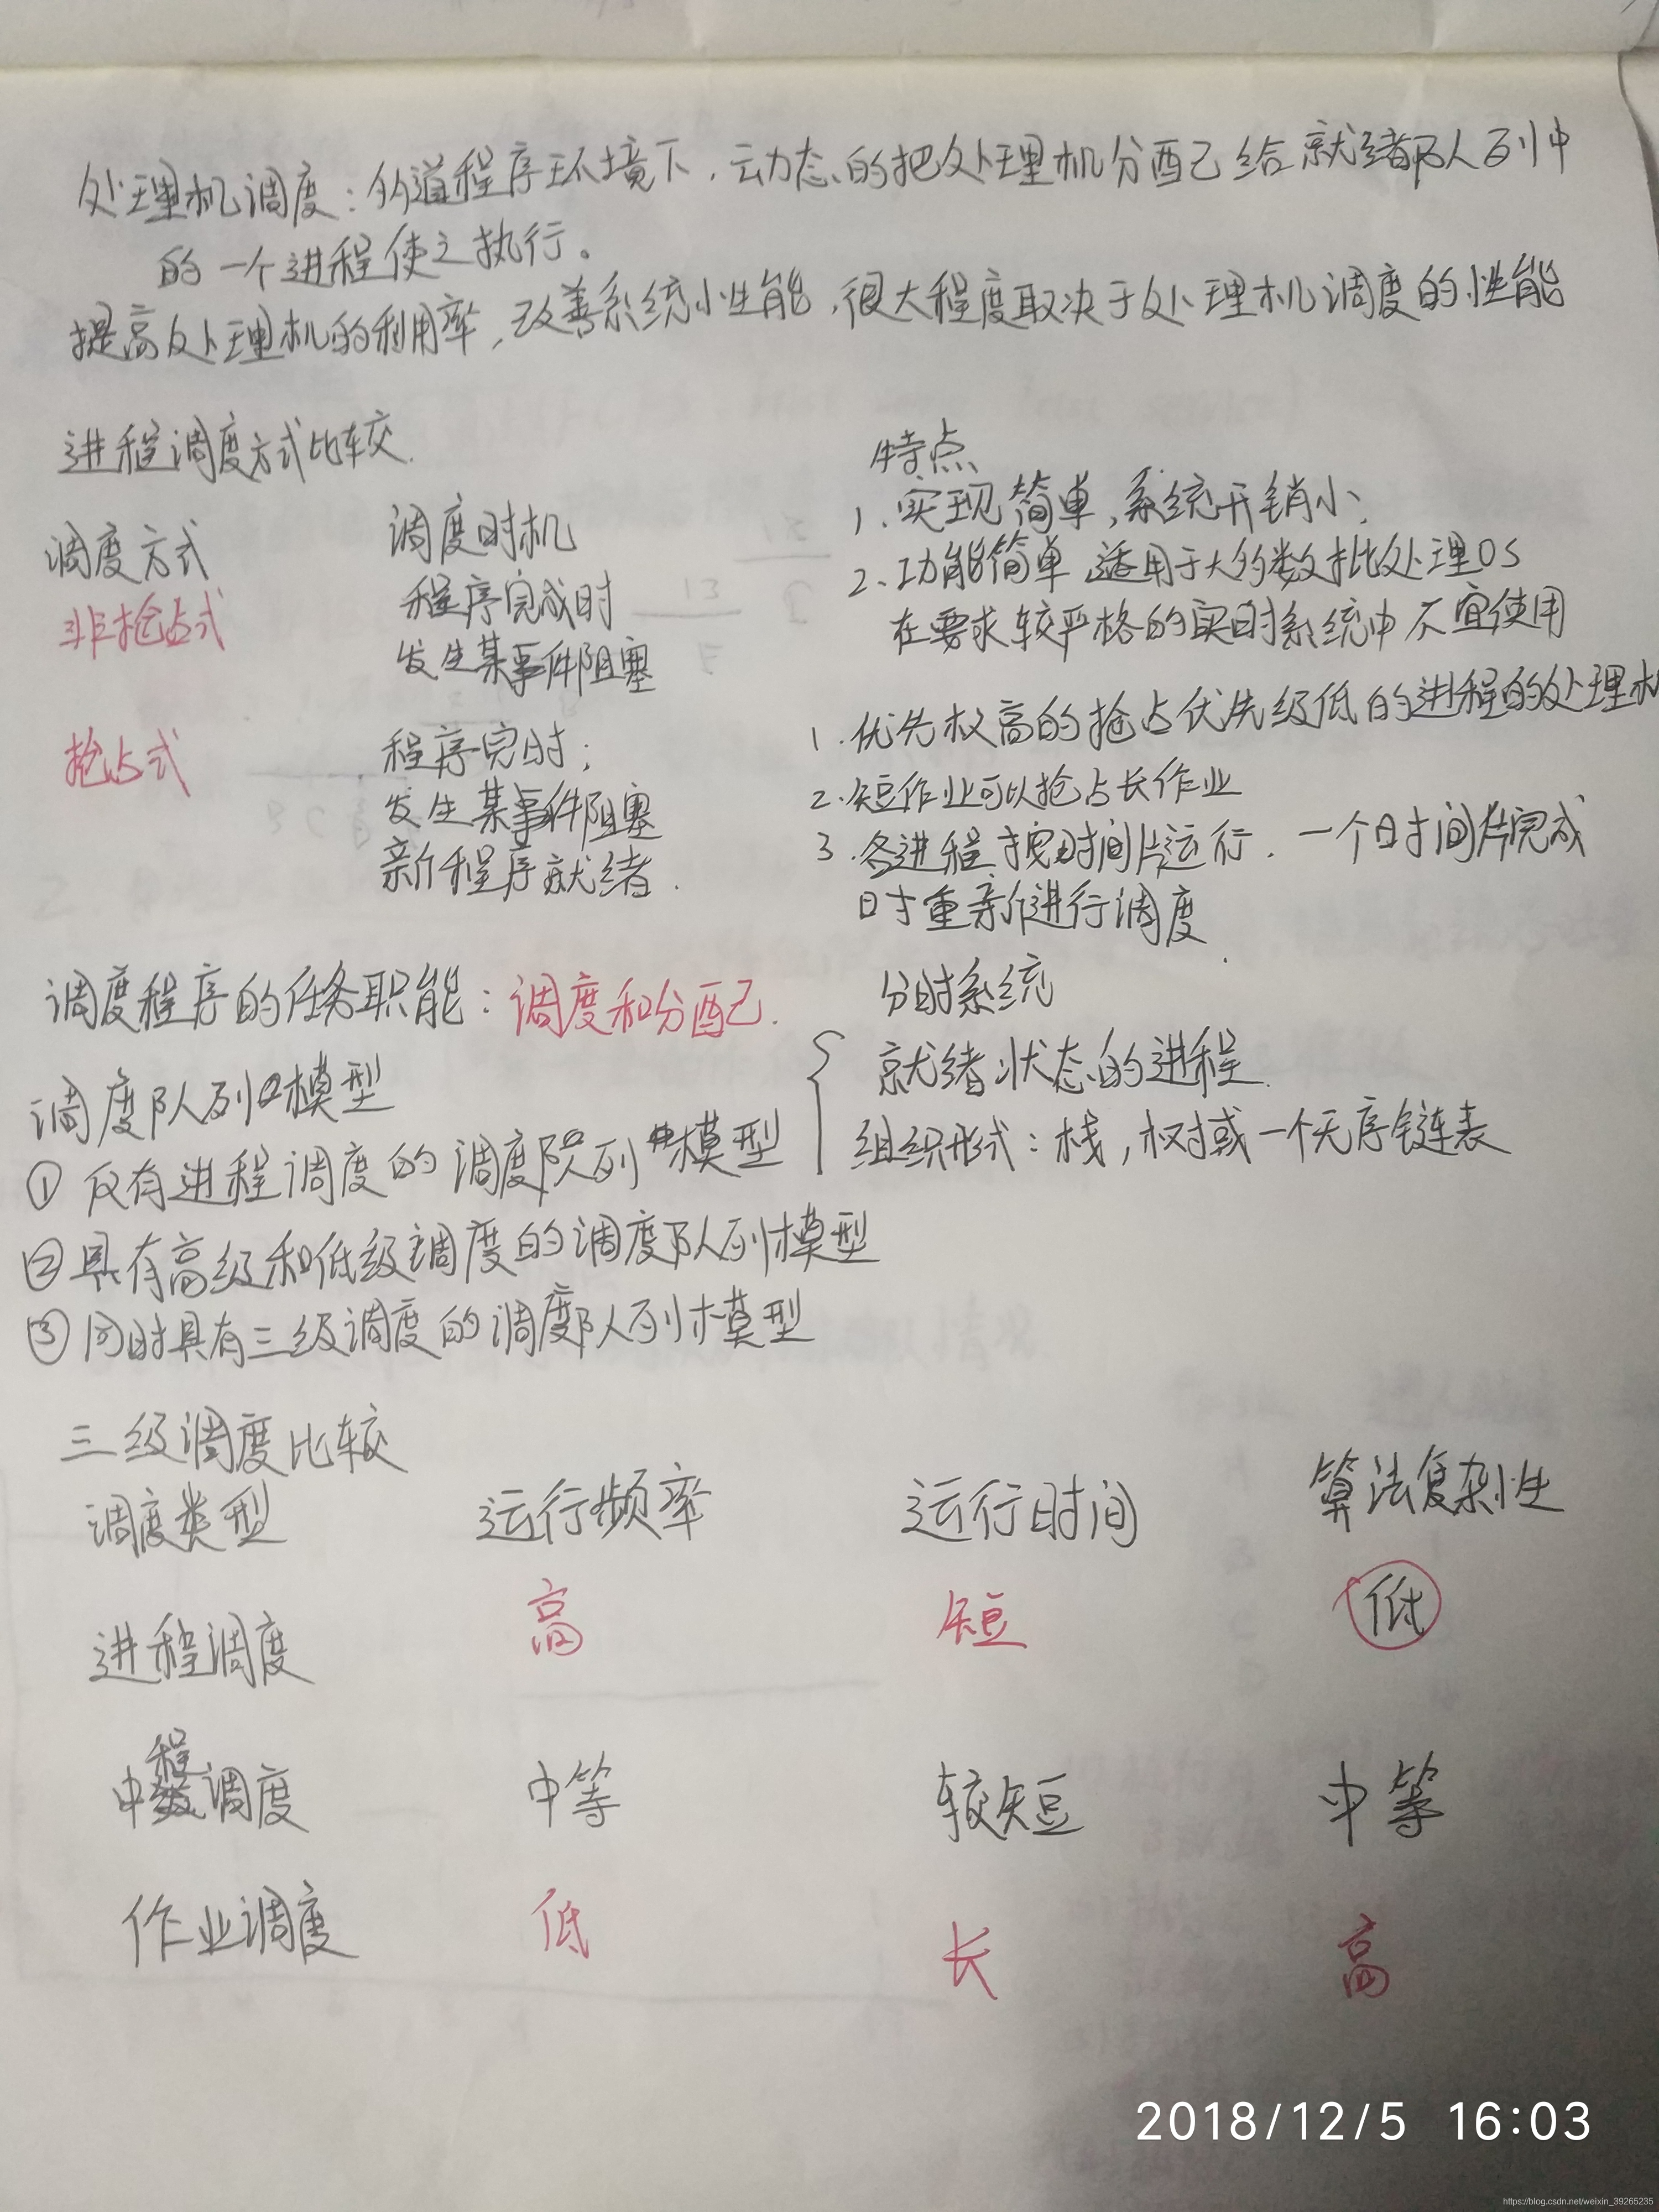 处理机调度：多道程序环境下，动态的把处理机分配给就绪队列中
的一个进程使之执行。
提高处理机的利用率，改善系统性能，很大程度取决于处理机调度的性能
进程调度方式比较.
特点
调度方式 调度时机 1.实现简单，系统开销小.
非抢占式 程序完成时 2.功能简单 适用于大多数批处理OS
发生某事件阻塞 在要求较严格的实时系统中不宜使用
抢占式 程序完时； 1.优先权高的抢占优先级低的进程的处理机
发生某事件阻塞 2.短作业可以抢占长作业
新程序就绪. 3.各进程按时间片运行.一个时间片完成
时重新进行调度.
调度程序的任务职能：调度和分配. 分时系统
调度队列模型 就绪状态的进程.
①仅有进程调度的调度队列模型 组织形式：栈，树或一个无序链表
②具有高级和低级调度的调度队列模型
③同时具有三级调度的调度队列模型
三级调度比较
调度类型 运行频率 运行时间 算法复杂性
进程调度 高 短 低
中程调度 中等 较短 中等
作业调度 低 长 高
2018/12/5 16:03
https://blog.csdn.net/weixin_39265235